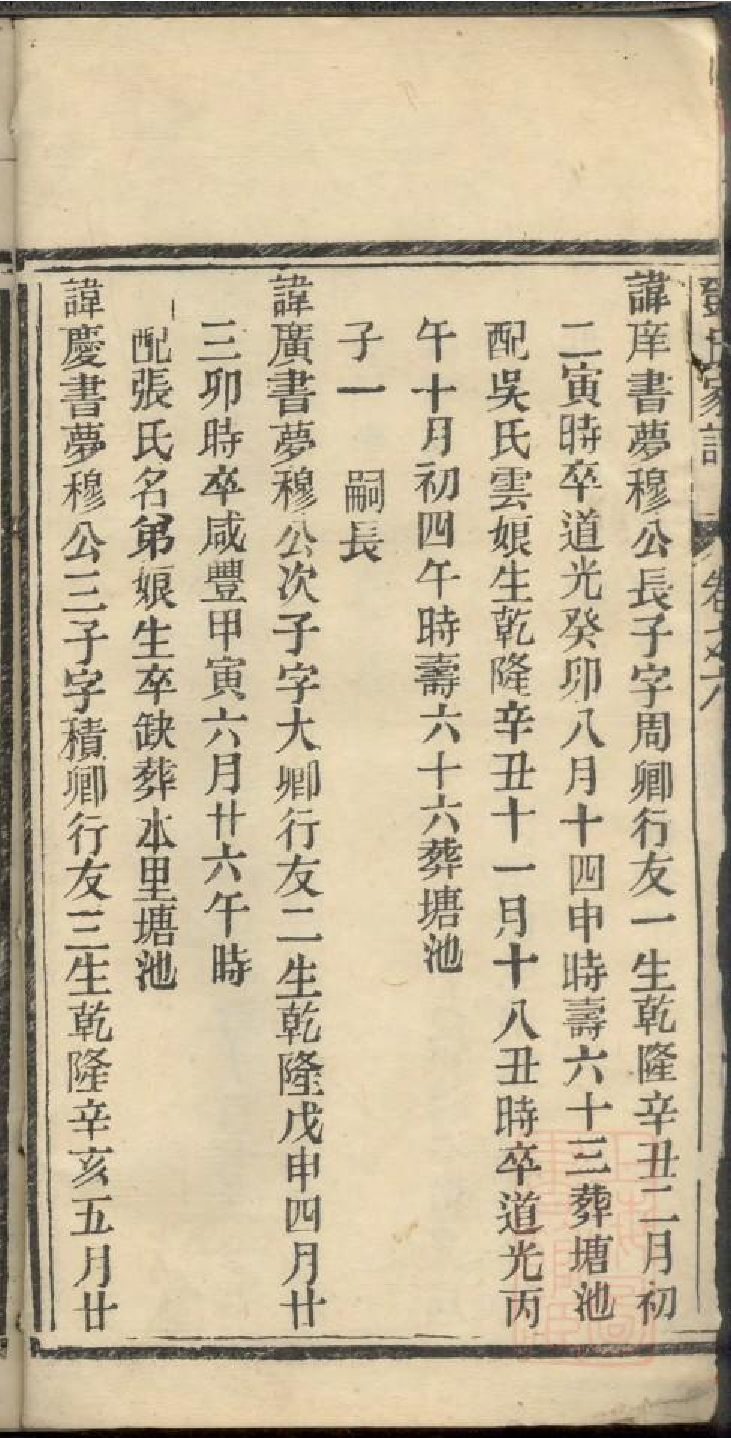 鄧氏家譜 卷之六
諱庠書夢穆公長子字周卿行友一生乾隆辛丑二月初
二寅時卒道光癸卯八月十四申時壽六十三葬塘池
配吳氏雲娘生乾隆辛丑十一月十八丑時卒道光丙
午十月初四午時壽六十六葬塘池
子一 嗣長
諱廣書夢穆公次子字大卿行友二生乾隆戊申四月廿
三卯時卒咸豐甲寅六月廿六午時
配張氏名弟娘生卒缺葬本里塘池
諱慶書夢穆公三子字積卿行友三生乾隆辛亥五月廿